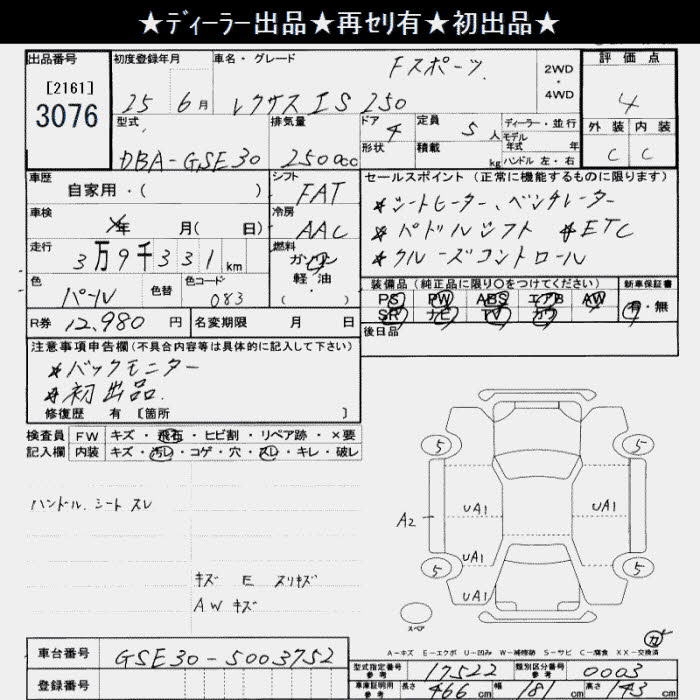 ★ディーラー出品★再セリ有★初出品★
出品番号
[2161]
3076
初度登録年月
25 6月
車名・グレード
Fスポーツ.
レクサス IS 250
2WD
・
4WD
評価点
4
外装 内装
C C
型式
DBA-GSE30
排気量
2500cc
ドア 4
形状
定員 5人
積載 kg
ディーラー・並行
モデル
年式 年
ハンドル 左・右
車歴
自家用・( )
シフト
FAT
車検
年 月( 日)
冷房
AAC
走行
3万9千331km
燃料
ガソリン
軽・油
( ・ )
色
パール
色替
色コード
083
R券 12,980 円
名変期限 月 日
セールスポイント(正常に機能するものに限ります)
★シートヒーター、ベンチレーター
★パドルシフト ★ETC
★クルーズコントロール
装備品(純正品に限り○をつけてください)
新車保証書
PS PW ABS エアB AW
SR ナビ TV カワ
有・無
後日品
注意事項申告欄(不具合内容等は具体的に記入して下さい)
★バックモニター
★初出品.
修復歴 有 [箇所 ]
検査員
記入欄
FW キズ・飛石・ヒビ割・リペア跡・×要
内装 キズ・汚レ・コゲ・穴・スレ・キレ・破レ
ハンドル、シート スレ
キズ E スリキズ
AW キズ
5 5
A2
UA1 UA1
UA1
5 5
UA1
スペア
A-キズ E-エクボ U-凹み W-補修跡 S-サビ C-腐食 XX-交換済
車台番号
GSE30-5003752
登録番号
型式指定番号
参考
17522
類別区分番号
参考
0003
車庫証明用
参考
長さ 466cm 幅 181cm 高さ 143cm